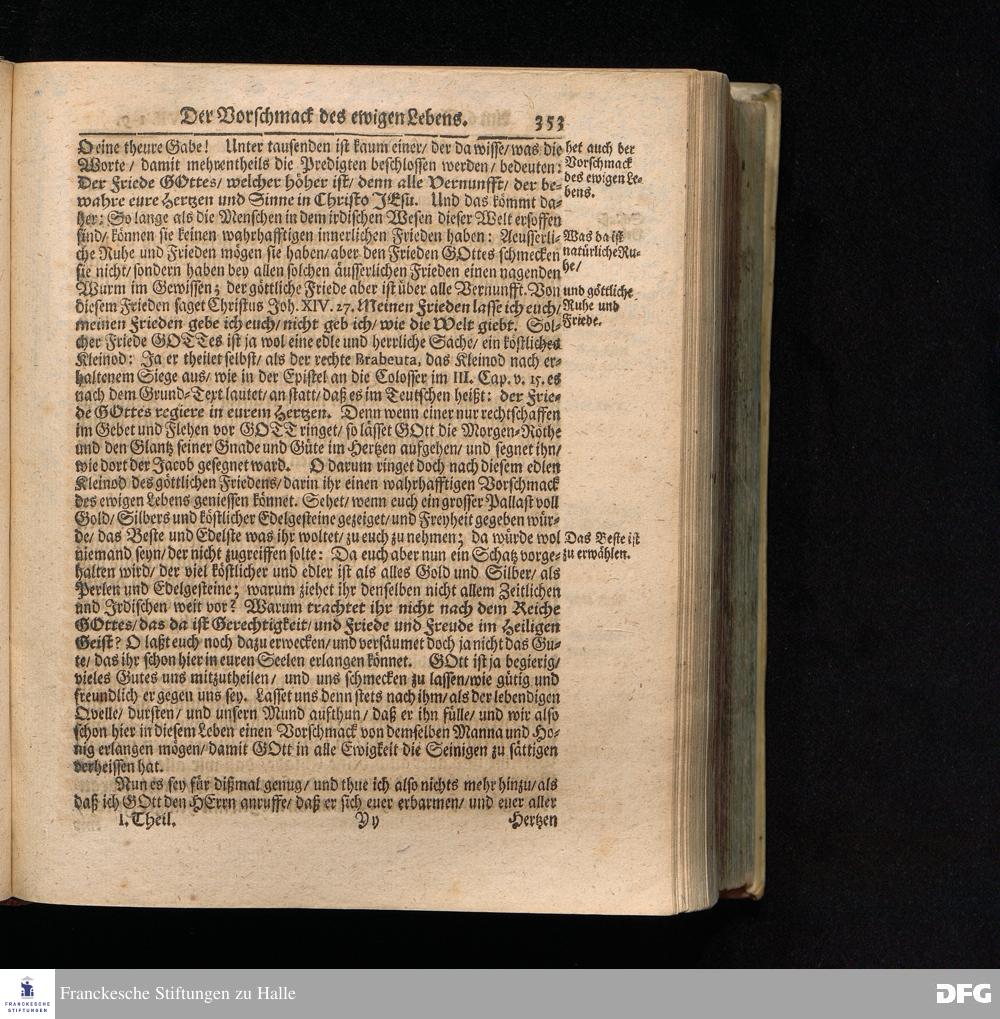 Der Vorschmack des ewigen Lebens. 353
O eine theure Gabe! Unter tausenden ist kaum einer/ der da wisse/ was die
Worte / damit mehrentheils die Predigten beschlossen werden/ bedeuten:
Der Friede GOttes/ welcher höher ist/ denn alle Vernunfft/ der be-
wahre eure Hertzen und Sinne in Christo JEsu. Und das kömmt da-
her: So lange als die Menschen in dem irdischen Wesen dieser Welt ersoffen
sind/ können sie keinen wahrhafftigen innerlichen Frieden haben: Aeusserli-
che Ruhe und Frieden mögen sie haben/ aber den Frieden GOttes schmecken
sie nicht/ sondern haben bey allen solchen äusserlichen Frieden einen nagenden
Wurm im Gewissen; der göttliche Friede aber ist über alle Vernunfft. Von
diesem Frieden saget Christus Joh. XIV. 27. Meinen Frieden lasse ich euch/
meinen Frieden gebe ich euch/ nicht geb ich/ wie die Welt giebt. Sol-
cher Friede GOTTes ist ja wol eine edle und herrliche Sache/ ein köstliches
Kleinod: Ja er theilet selbst/ als der rechte Brabeuta, das Kleinod nach er-
haltenem Siege aus/ wie in der Epistel an die Colosser im III. Cap. v. 15. es
nach dem Grund-Text lautet/ an statt/ daß es im Teutschen heißt: der Frie-
de GOttes regiere in eurem Hertzen. Denn wenn einer nur rechtschaffen
im Gebet und Flehen vor GOTT ringet/ so lässet GOtt die Morgen-Röthe
und den Glantz seiner Gnade und Güte im Hertzen aufgehen/ und segnet ihn/
wie dort der Jacob gesegnet ward. O darum ringet doch nach diesem edlen
Kleinod des göttlichen Friedens/ darin ihr einen wahrhafftigen Vorschmack
des ewigen Lebens geniessen könnet. Sehet/ wenn euch ein grosser Pallast voll
Gold/ Silbers und köstlicher Edelgesteine gezeiget/ und Freyheit gegeben wür-
de/ das Beste und Edelste was ihr woltet/ zu euch zu nehmen; da würde wol
niemand seyn/ der nicht zugreiffen solte: Da euch aber nun ein Schatz vorge-
halten wird/ der viel köstlicher und edler ist als alles Gold und Silber/ als
Perlen und Edelgesteine; warum ziehet ihr denselben nicht allem Zeitlichen
und Irdischen weit vor? Warum trachtet ihr nicht nach dem Reiche
GOttes/ das da ist Gerechtigkeit/ und Friede und Freude im Heiligen
Geist? O laßt euch noch dazu erwecken/ und versäumet doch ja nicht das Gu-
te/ das ihr schon hier in euren Seelen erlangen könnet. GOtt ist ja begierig/
vieles Gutes uns mitzutheilen/ und uns schmecken zu lassen/ wie gütig und
freundlich er gegen uns sey. Lasset uns denn stets nach ihm/ als der lebendigen
Qvelle/ dursten/ und unsern Mund aufthun/ daß er ihn fülle/ und wir also
schon hier in diesem Leben einen Vorschmack von demselben Manna und Ho-
nig erlangen mögen/ damit GOtt in alle Ewigkeit die Seinigen zu sättigen
verheissen hat.
Nun es sey für dißmal genug/ und thue ich also nichts mehr hinzu/ als
daß ich GOtt den HErrn anruffe/ daß er sich euer erbarmen/ und euer aller
I. Theil. Yy Hertzen
het auch der
Vorschmack
des ewigen Le-
bens.
Was da ist
natürliche Ru-
he/
und göttliche
Ruhe und
Friede.
Das Beste ist
zu erwählen.
FRANCKESCHE
STIFTUNGEN
Franckesche Stiftungen zu Halle
DFG